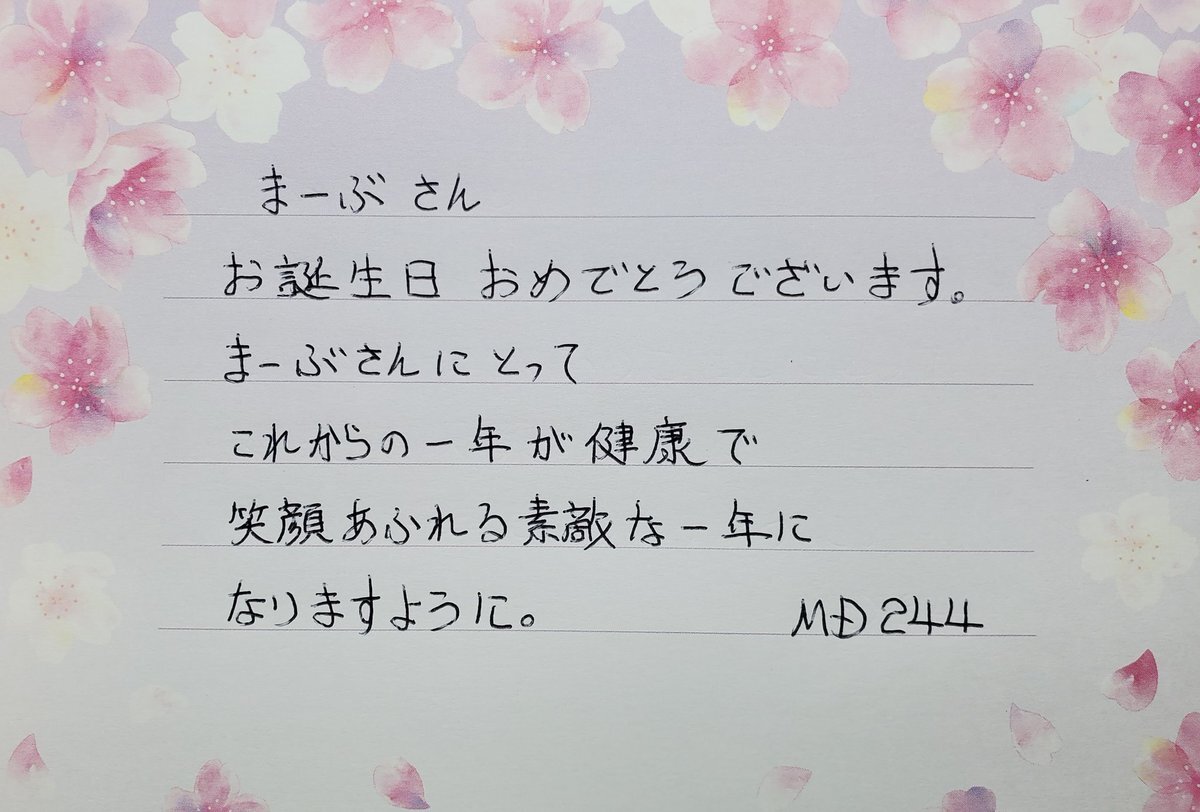 まーぶ さん
お誕生日 おめでとうございます。
まーぶさんに とって
これからの一年が健康で
笑顔あふれる素敵な一年に
なりますように。 MD244